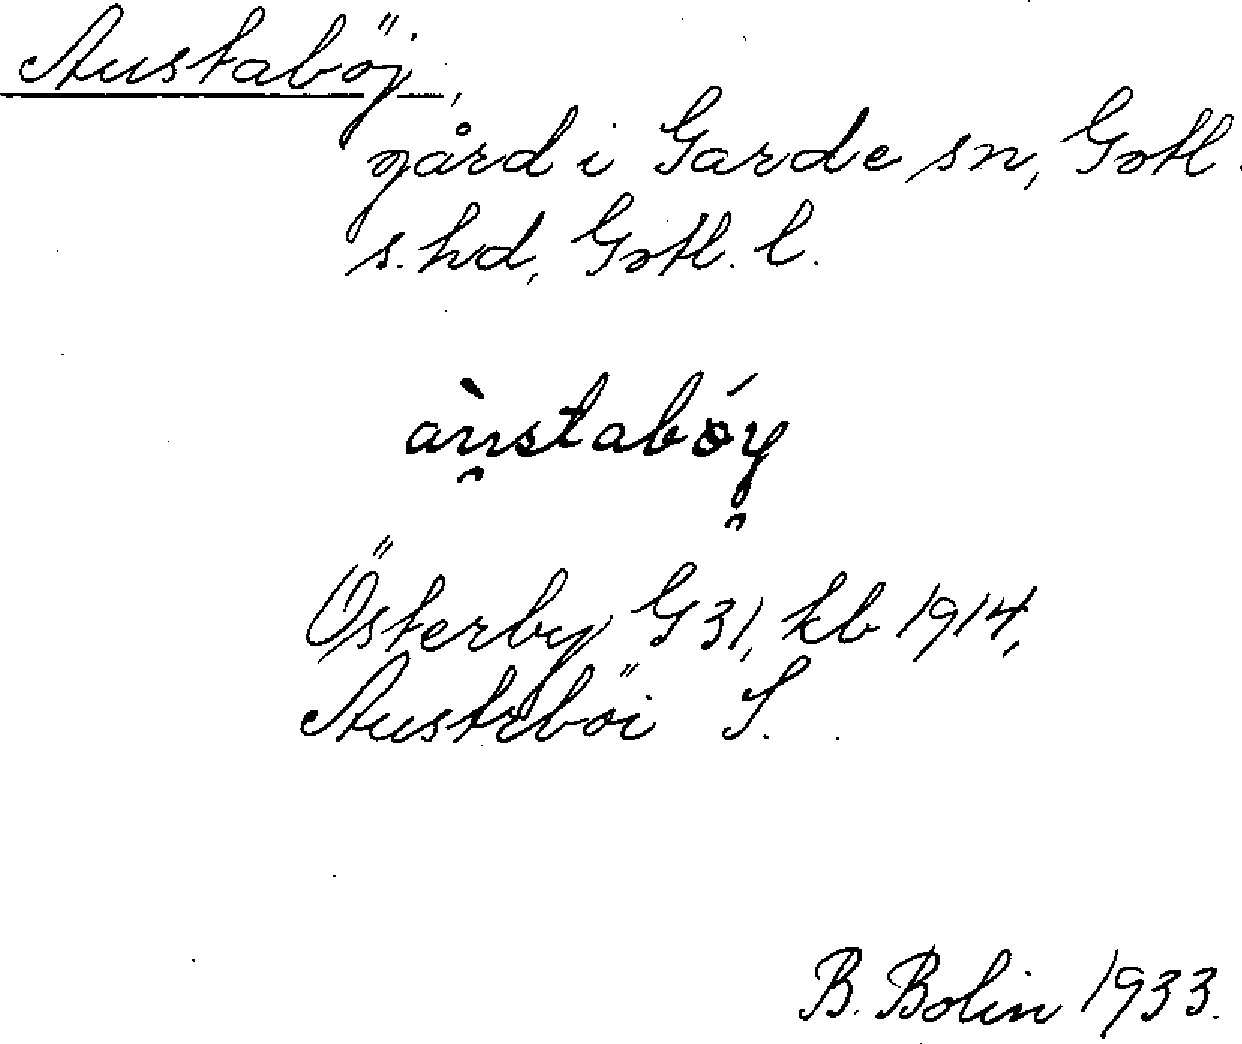 Austaböj,
gård i Garde sn, Gotl.
s. hd, Gotl. l.
àu̯stabóy̯
Österby G 31, kb 1914,
Austrböi S.
B. Bolin 1933.